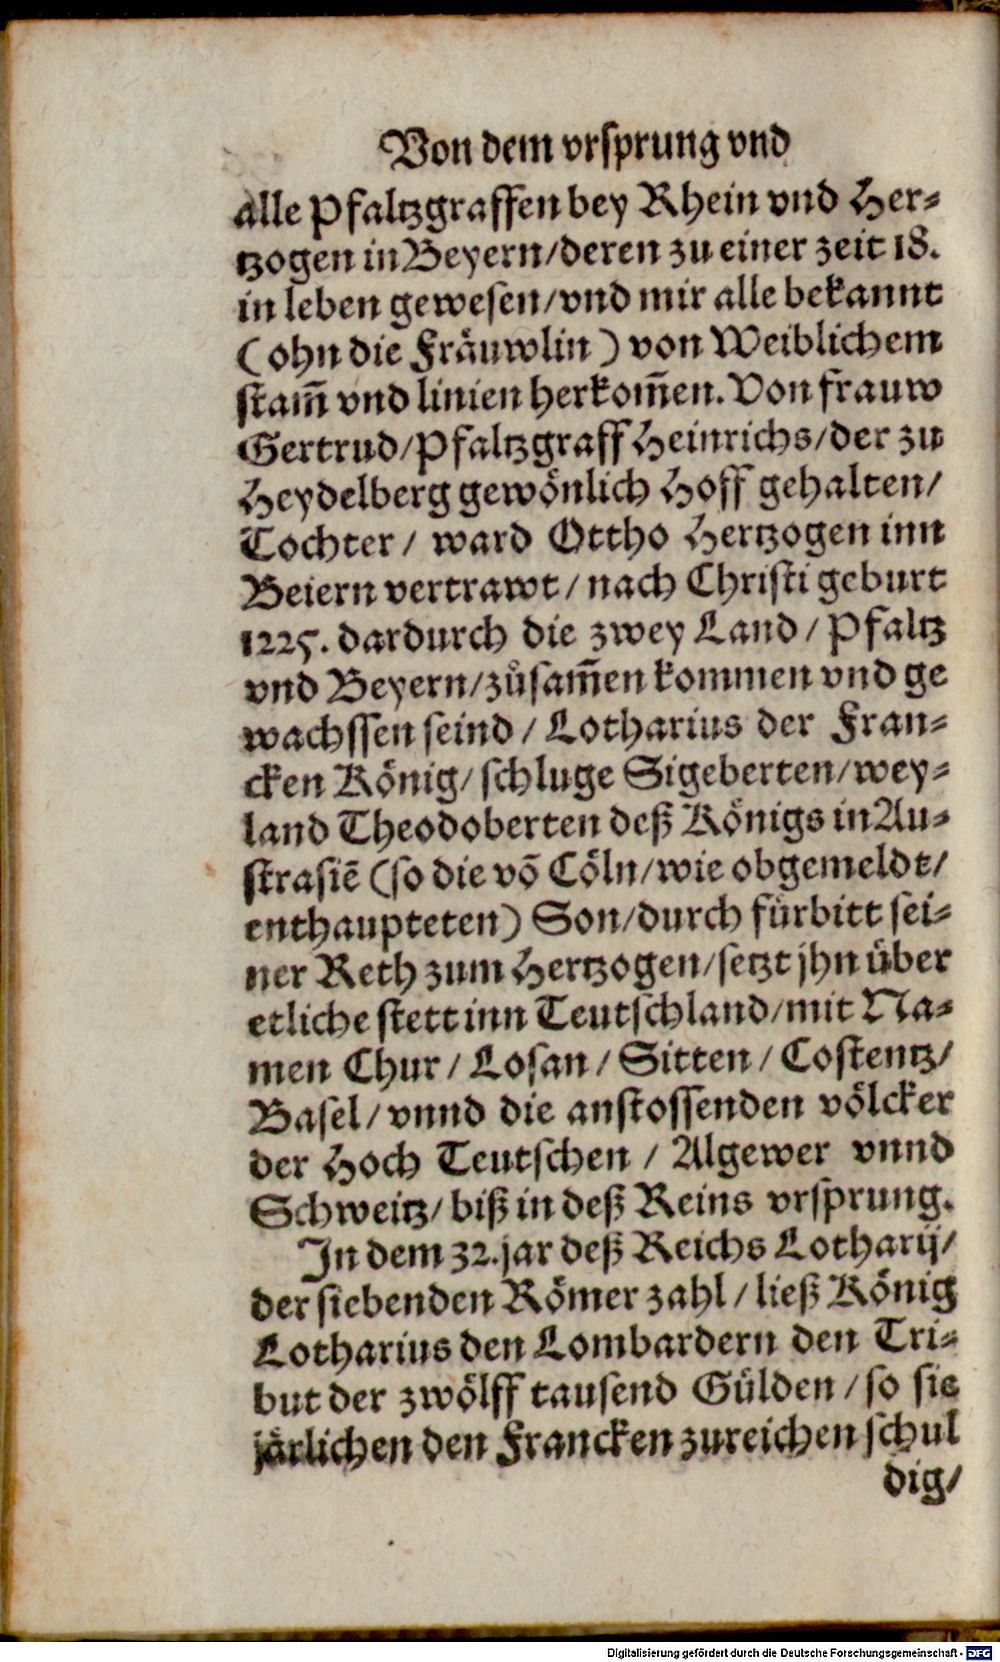 Von dem vrsprung vnd
alle Pfaltzgraffen bey Rhein vnd Her-
tzogen in Beyern/deren zu einer zeit 18.
in leben gewesen/vnd mir alle bekannt
(ohn die Fräuwlin) von Weiblichem
stam̃ vnd linien herkom̃en. Von frauw
Gertrud/Pfaltzgraff Heinrichs/der zu
Heydelberg gewönlich Hoff gehalten/
Tochter/ ward Ottho Hertzogen inn
Beiern vertrawt/ nach Christi geburt
1225. dardurch die zwey Land/ Pfaltz
vnd Beyern/zůsam̃en kommen vnd ge
wachssen seind/ Lotharius der Fran-
cken König/ schluge Sigeberten/wey-
land Theodoberten deß Königs in Au-
strasiẽ (so die võ Cöln/wie obgemeldt/
enthaupteten) Son/durch fürbitt sei-
ner Reth zum Hertzogen/setzt jhn über
etliche stett inn Teutschland/mit Na-
men Chur/ Losan/ Sitten/ Costentz/
Basel/ vnnd die anstossenden völcker
der Hoch Teutschen/ Algewer vnnd
Schweitz/ biß in deß Reins vrsprung.
In dem 32. jar deß Reichs Lotharij/
der siebenden Römer zahl/ ließ König
Lotharius den Lombardern den Tri-
but der zwölff tausend Gülden/ so sie
järlichen den Francken zureichen schul
dig/
Digitalisierung gefördert durch die Deutsche Forschungsgemeinschaft - DFG